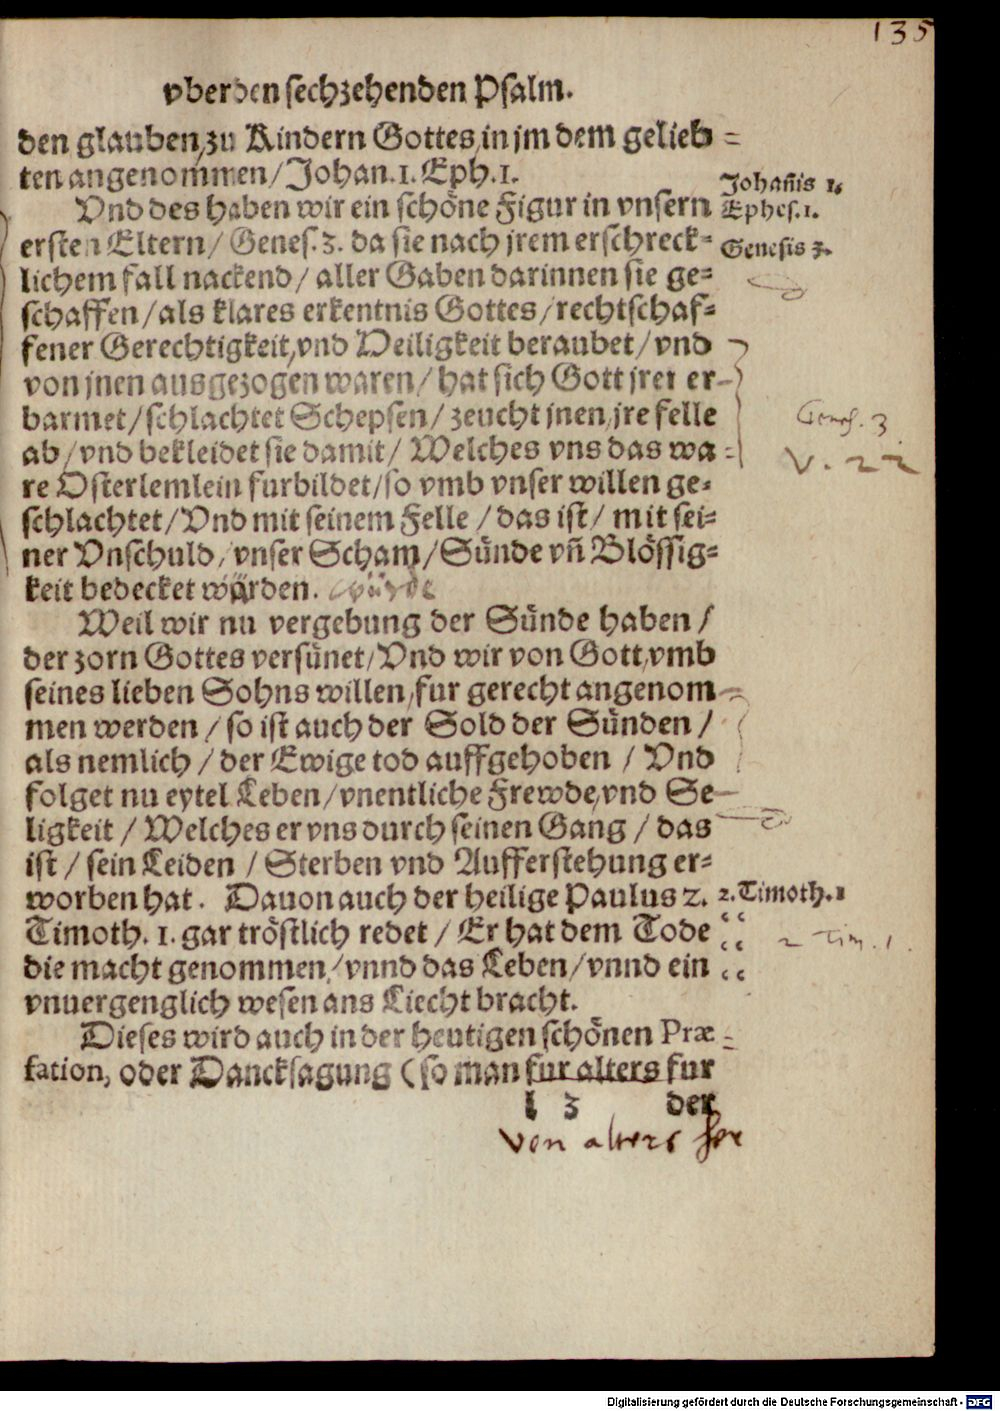 135
vber den sechzehenden Psalm.
den glauben, zu Kindern Gottes, in jm dem gelieb=
ten angenommen / Johan. 1. Eph. 1.
Johañis 1.
Vnd des haben wir ein schöne Figur in vnsern
Ephes. 1.
ersten Eltern / Genes. 3. da sie nach jrem erschreck=
Genesis 3.
lichem fall nackend / aller Gaben darinnen sie ge=
schaffen / als klares erkentnis Gottes / rechtschaf=
fener Gerechtigkeit, vnd Heiligkeit beraubet / vnd
von jnen ausgezogen waren / hat sich Gott jrer er=
barmet / schlachtet Schepsen / zeucht jnen, jre felle
Genes. 3
ab / vnd bekleidet sie damit / Welches vns das wa=
V. 22
re Osterlemlein furbildet / so vmb vnser willen ge=
schlachtet / Vnd mit seinem Felle / das ist / mit sei=
ner Vnschuld / vnser Scham / Sünde vñ Blössig=
keit bedecket würden. würde
Weil wir nu vergebung der Sünde haben /
der zorn Gottes versünet / Vnd wir von Gott, vmb
seines lieben Sohns willen, fur gerecht angenom=
men werden / so ist auch der Sold der Sünden /
als nemlich / der Ewige tod auffgehoben / Vnd
folget nu eytel Leben / vnentliche Frewde, vnd Se=
ligkeit / Welches er vns durch seinen Gang / das
ist / sein Leiden / Sterben vnd Aufferstehung er=
worben hat. Dauon auch der heilige Paulus 2.
2. Timoth. 1
Timoth. 1. gar tröstlich redet / Er hat dem Tode
2 Tim. 1.
die macht genommen / vnnd das Leben / vnnd ein
vnuergenglich wesen ans Liecht bracht.
Dieses wird auch in der heutigen schönen Præ=
fation, oder Dancksagung ( so man fur alters fur
l 3 der
von alters her
Digitalisierung gefördert durch die Deutsche Forschungsgemeinschaft - DFG